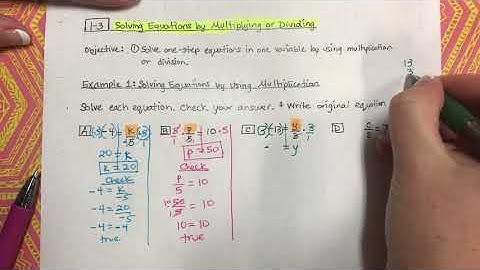 1-3 Solving Equations by Multiplying or Dividing
Objective: ① Solve one-step equations in one variable by using multiplication
or division.
Example 1: Solving Equations by Using Multiplication
Solve each equation. Check your answer. * Write original equation
13
3
A (-5) -4 = k/-5 (-5)/1
20 = k
k = 20
Check
-4 = k/-5
-4 = 20/-5
-4 = -4
true
B 5/1 · p/5 = 10 · 5
p = 50
Check
p/5 = 10
50/5 = 10
10 = 10
true
C (3) (-13) = y/3 · 3/1
- = y
D c/8 = 7